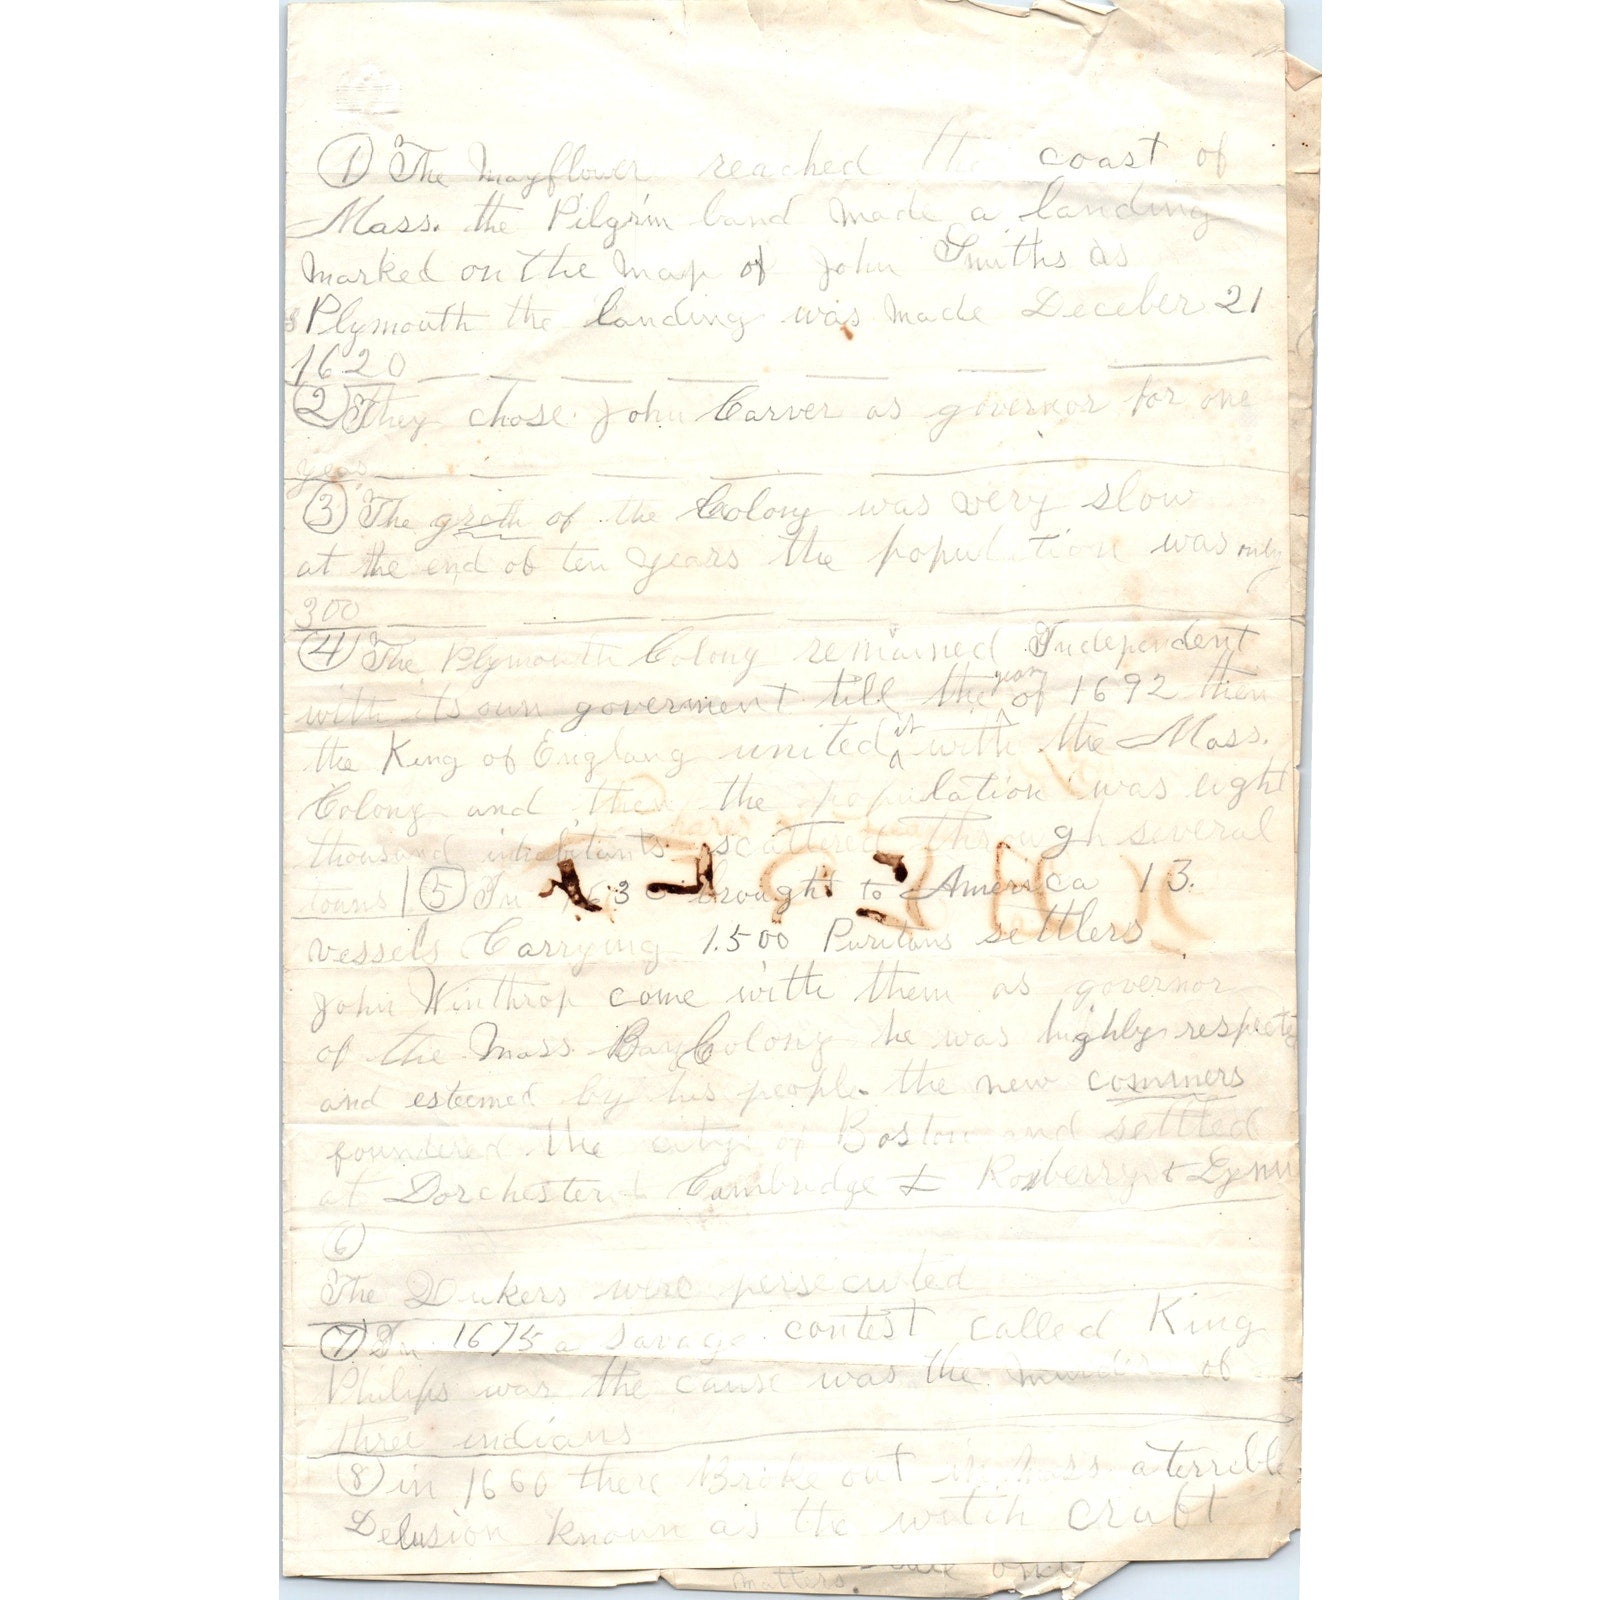 ① The Mayflower reached the coast of
Mass. the Pilgrim band made a landing
marked on the map of John Smiths as
Plymouth the landing was made Deceber 21
1620
② They chose John Carver as governor for one
year
③ The groth of the Colony was very slow
at the end of ten years the population was only
300
④ The Plymouth Colony remained Independent
with its own goverment till the year of 1692 then
the King of Englang united it with the Mass.
Colony and then the population was eight
thousand inhabitants scattered through several
touns | ⑤ In 1630 brought to America 13.
vessels Carrying 1.500 Puritans settlers
John Winthrop come with them as governor
of the Mass. Bay Colony he was highly respected
and esteemed by his people. the new commers
foundered the city of Boston and settled
at Dorchester & Cambridge & Roxberry & Lynn
⑥
The Qukers were persecuted
⑦ In 1675 a savage contest called King
Philips was the cause was the murder of
three indians
⑧ in 1660 there Broke out in Mass. a terrible
Delusion known as the witch craft
matters. are only